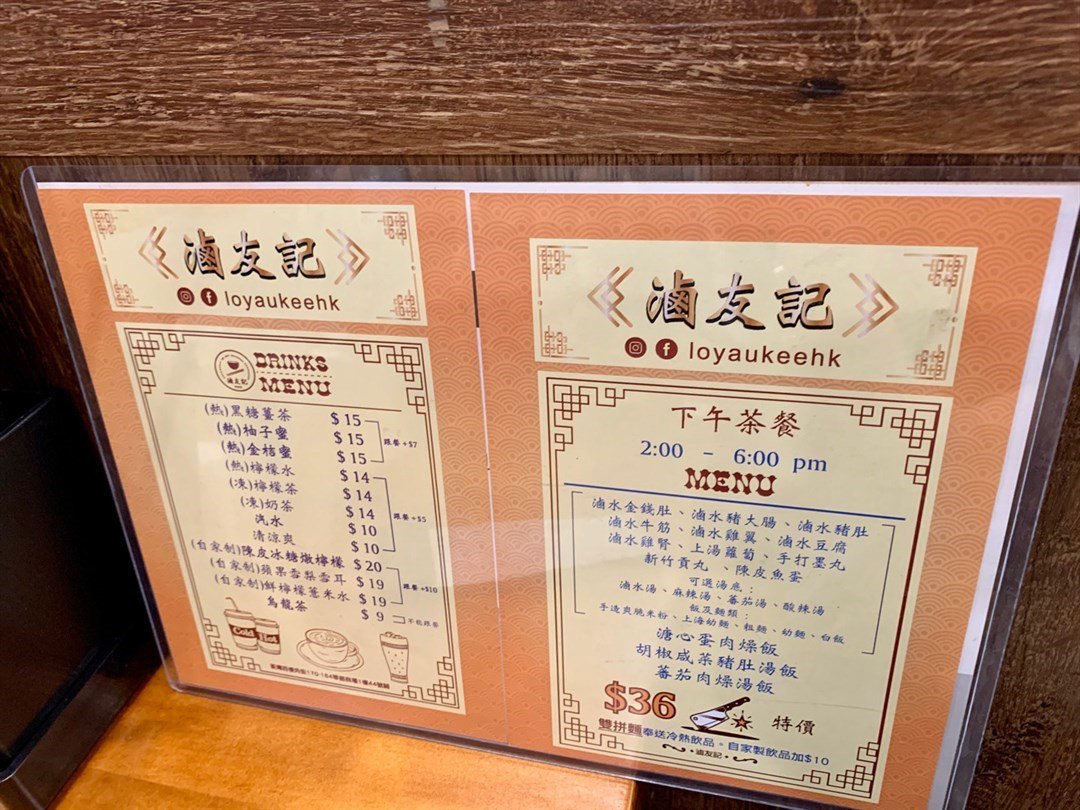 滷友記
loyaukeehk
滷友記
DRINKS
MENU
(熱)黑糖薑茶 $15
(熱)柚子蜜 $15
(熱)金桔蜜 $15
跟餐+$7
(熱)檸檬水 $14
(凍)檸檬茶 $14
(凍)奶茶 $14
汽水 $10
清涼爽 $10
跟餐+$5
(自家制)陳皮冰糖燉檸檬 $20
(自家制)蘋果雪梨雪耳 $19
(自家制)鮮檸檬薏米水 $19
跟餐+$10
烏龍茶 $9
不能跟餐
Cold
Hot
滷友記
loyaukeehk
下午茶餐
2:00 - 6:00 pm
MENU
滷水金錢肚、滷水豬大腸、滷水豬肚
滷水牛筋、滷水雞翼、滷水豆腐
滷水雞腎、上湯蘿蔔、手打墨丸
新竹貢丸、陳皮魚蛋
可選湯底:
滷水湯、麻辣湯、蕃茄湯、酸辣湯
飯及麵類:
手造爽脆米粉、上海幼麵、粗麵、幼麵、白飯
溏心蛋肉燥飯
胡椒咸菜豬肚湯飯
蕃茄肉燥湯飯
$36 特價
雙拼麵奉送冷熱飲品。自家製飲品加$10
滷友記